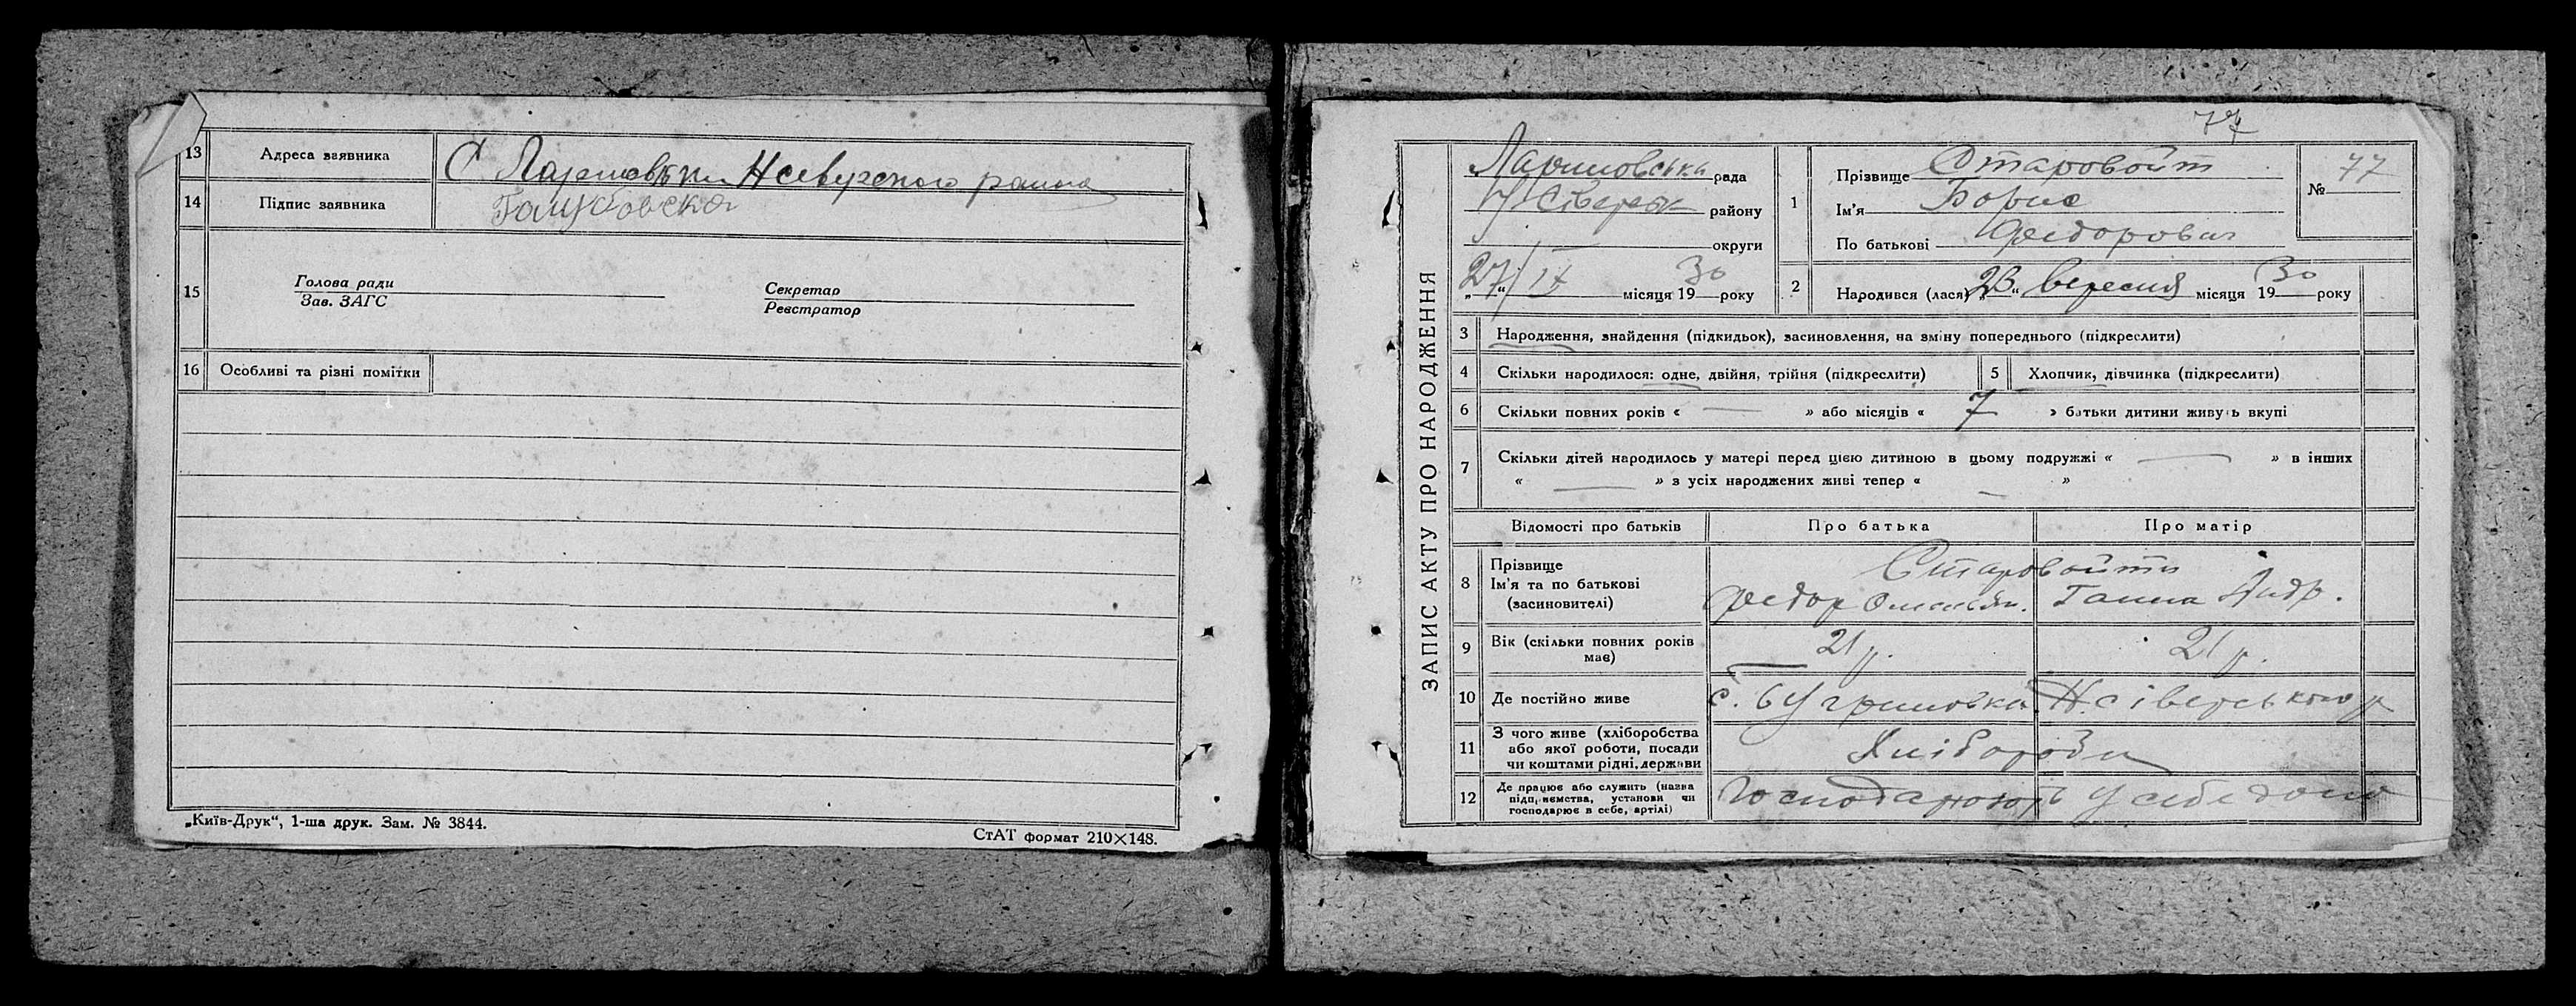 13 Адреса заявника С
14 Підпис заявника Голубовска
15 Голова ради
Зав. ЗАГС
Секретар
Реєстратор
16 Особливі та різні помітки
„Київ-Друк“, 1-ша друк. Зам. № 3844.
СтАТ формат 210×148.
77
ЗАПИС АКТУ ПРО НАРОДЖЕННЯ
Лариновська рада
району
округи
„27“ IX місяця 1930 року
1 Прізвище Старовойт
Ім'я Борис
По батькові Федорович
№ 77
2 Народився (лася) „23“ вересня місяця 1930 року
3 Народження, знайдення (підкидьок), засиновлення, на зміну попереднього (підкреслити)
4 Скільки народилося: одне, двійня, трійня (підкреслити)
5 Хлопчик, дівчинка (підкреслити)
6 Скільки повних років « — » або місяців « 7 » батьки дитини живуть вкупі
7 Скільки дітей народилось у матері перед цією дитиною в цьому подружжі « — » в інших
« — » з усіх народжених живі тепер « — »
Відомості про батьків Про батька Про матір
8 Прізвище
Ім'я та по батькові
(засиновителі)
Старовойти
Федор Омельян. Ганна Андр.
9 Вік (скільки повних років
має)
21 р. 21 р.
10 Де постійно живе с.
11 З чого живе (хліборобства
або якої роботи, посади
чи коштами рідні, держави
Хлібороби
12 Де працює або служить (назва
підприємства, установи чи
господарює в себе, артілі)
Господарюють у себе дома